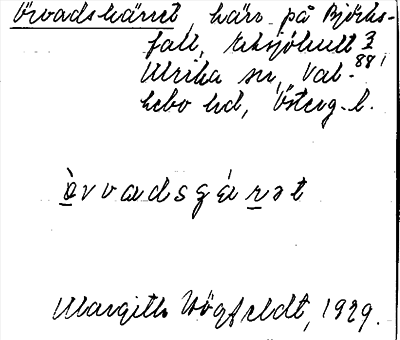 Örvadskärret, kärr på Björks-
fall, Eksjöhult I
88¹
Ulrika sn, Val-
kebo hd, Österg. l.
ò r v a d s ç æ r ə t
Margith Högfeldt, 1929.